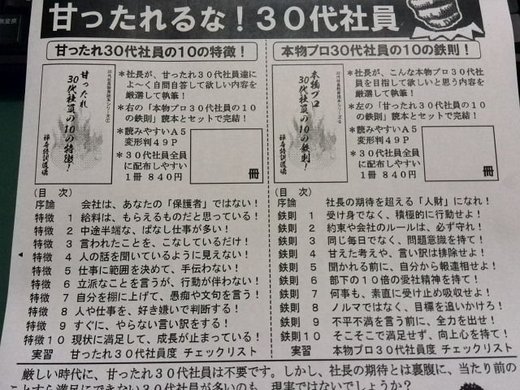 甘ったれるな！３０代社員
甘ったれ３０代社員の１０の特徴！
甘ったれ
３０代社員の１０の特徴！
＊社長が、甘ったれ３０代社員達に
よ～く自問自答して欲しい内容を
厳選して執筆！
＊右の「本物プロ３０代社員の１０
の鉄則」読本とセットで完結！
＊読みやすいＡ５
変形判４９Ｐ
＊３０代社員全員
に配布しやすい
１冊 ８４０円
冊
（目 次）
序論 会社は、あなたの「保護者」ではない！
特徴 １ 給料は、もらえるものだと思っている！
特徴 ２ 中途半端な、ぱなし仕事が多い！
特徴 ３ 言われたことを、こなしているだけ！
特徴 ４ 人の話を聞いているように見えない！
特徴 ５ 仕事に範囲を決めて、手伝わない！
特徴 ６ 立派なことを言うが、行動が伴わない！
特徴 ７ 自分を棚に上げて、愚痴や文句を言う！
特徴 ８ 人や仕事を、好き嫌いで判断する！
特徴 ９ すぐに、やらない言い訳をする！
特徴１０ 現状に満足して、成長が止まっている！
実習 甘ったれ３０代社員度 チェックリスト
本物プロ３０代社員の１０の鉄則！
本物プロ
３０代社員の１０の鉄則！
＊社長が、こんな本物プロ３０代社
員を目指して欲しいと思う内容を
厳選して執筆！
＊左の「甘ったれ３０代社員の１０
の特徴」読本とセットで完結！
＊読みやすいＡ５
変形判４９Ｐ
＊３０代社員全員
に配布しやすい
１冊 ８４０円
冊
（目 次）
序論 社長の期待を超える「人財」になれ！
鉄則 １ 受け身でなく、積極的に行動せよ！
鉄則 ２ 約束や会社のルールは、必ず守れ！
鉄則 ３ 同じ毎日でなく、問題意識を持て！
鉄則 ４ 甘えた考えや、言い訳は排除せよ！
鉄則 ５ 聞かれる前に、自分から報連相せよ！
鉄則 ６ 部下の１０倍の愛社精神を持て！
鉄則 ７ 何事も、素直に受け止め吸収せよ！
鉄則 ８ ノルマではなく、目標を追いかけろ！
鉄則 ９ 不平不満を言う前に、全力を出せ！
鉄則１０ そこそこで満足せず、向上心を持て！
実習 本物プロ３０代社員度 チェックリスト
厳しい時代に、甘ったれ３０代社員は不要です。しかし、社長の期待とは裏腹に、当たり前の
ことすら満足にできない３０代社員が多いのも、現実ではないでしょうか？